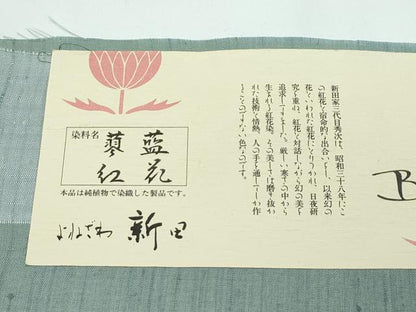 新田家三代目秀次は、昭和三十八年にこ
の紅花と宿命的な出合いをし、以来幻の
花といわれた紅花にとりつかれ、日夜研
究を重ね、紅花と対話しながら幻の美を
追求してきました。厳しい寒さの中から
生まれる紅花染。その美しさは磨き抜か
れた技術と情熱、人の手を通してしか作
ることのできない色なのです。
染料名
藍 蓼
花 紅
本品は純植物で染織した製品です。
よねざわ 新田
B